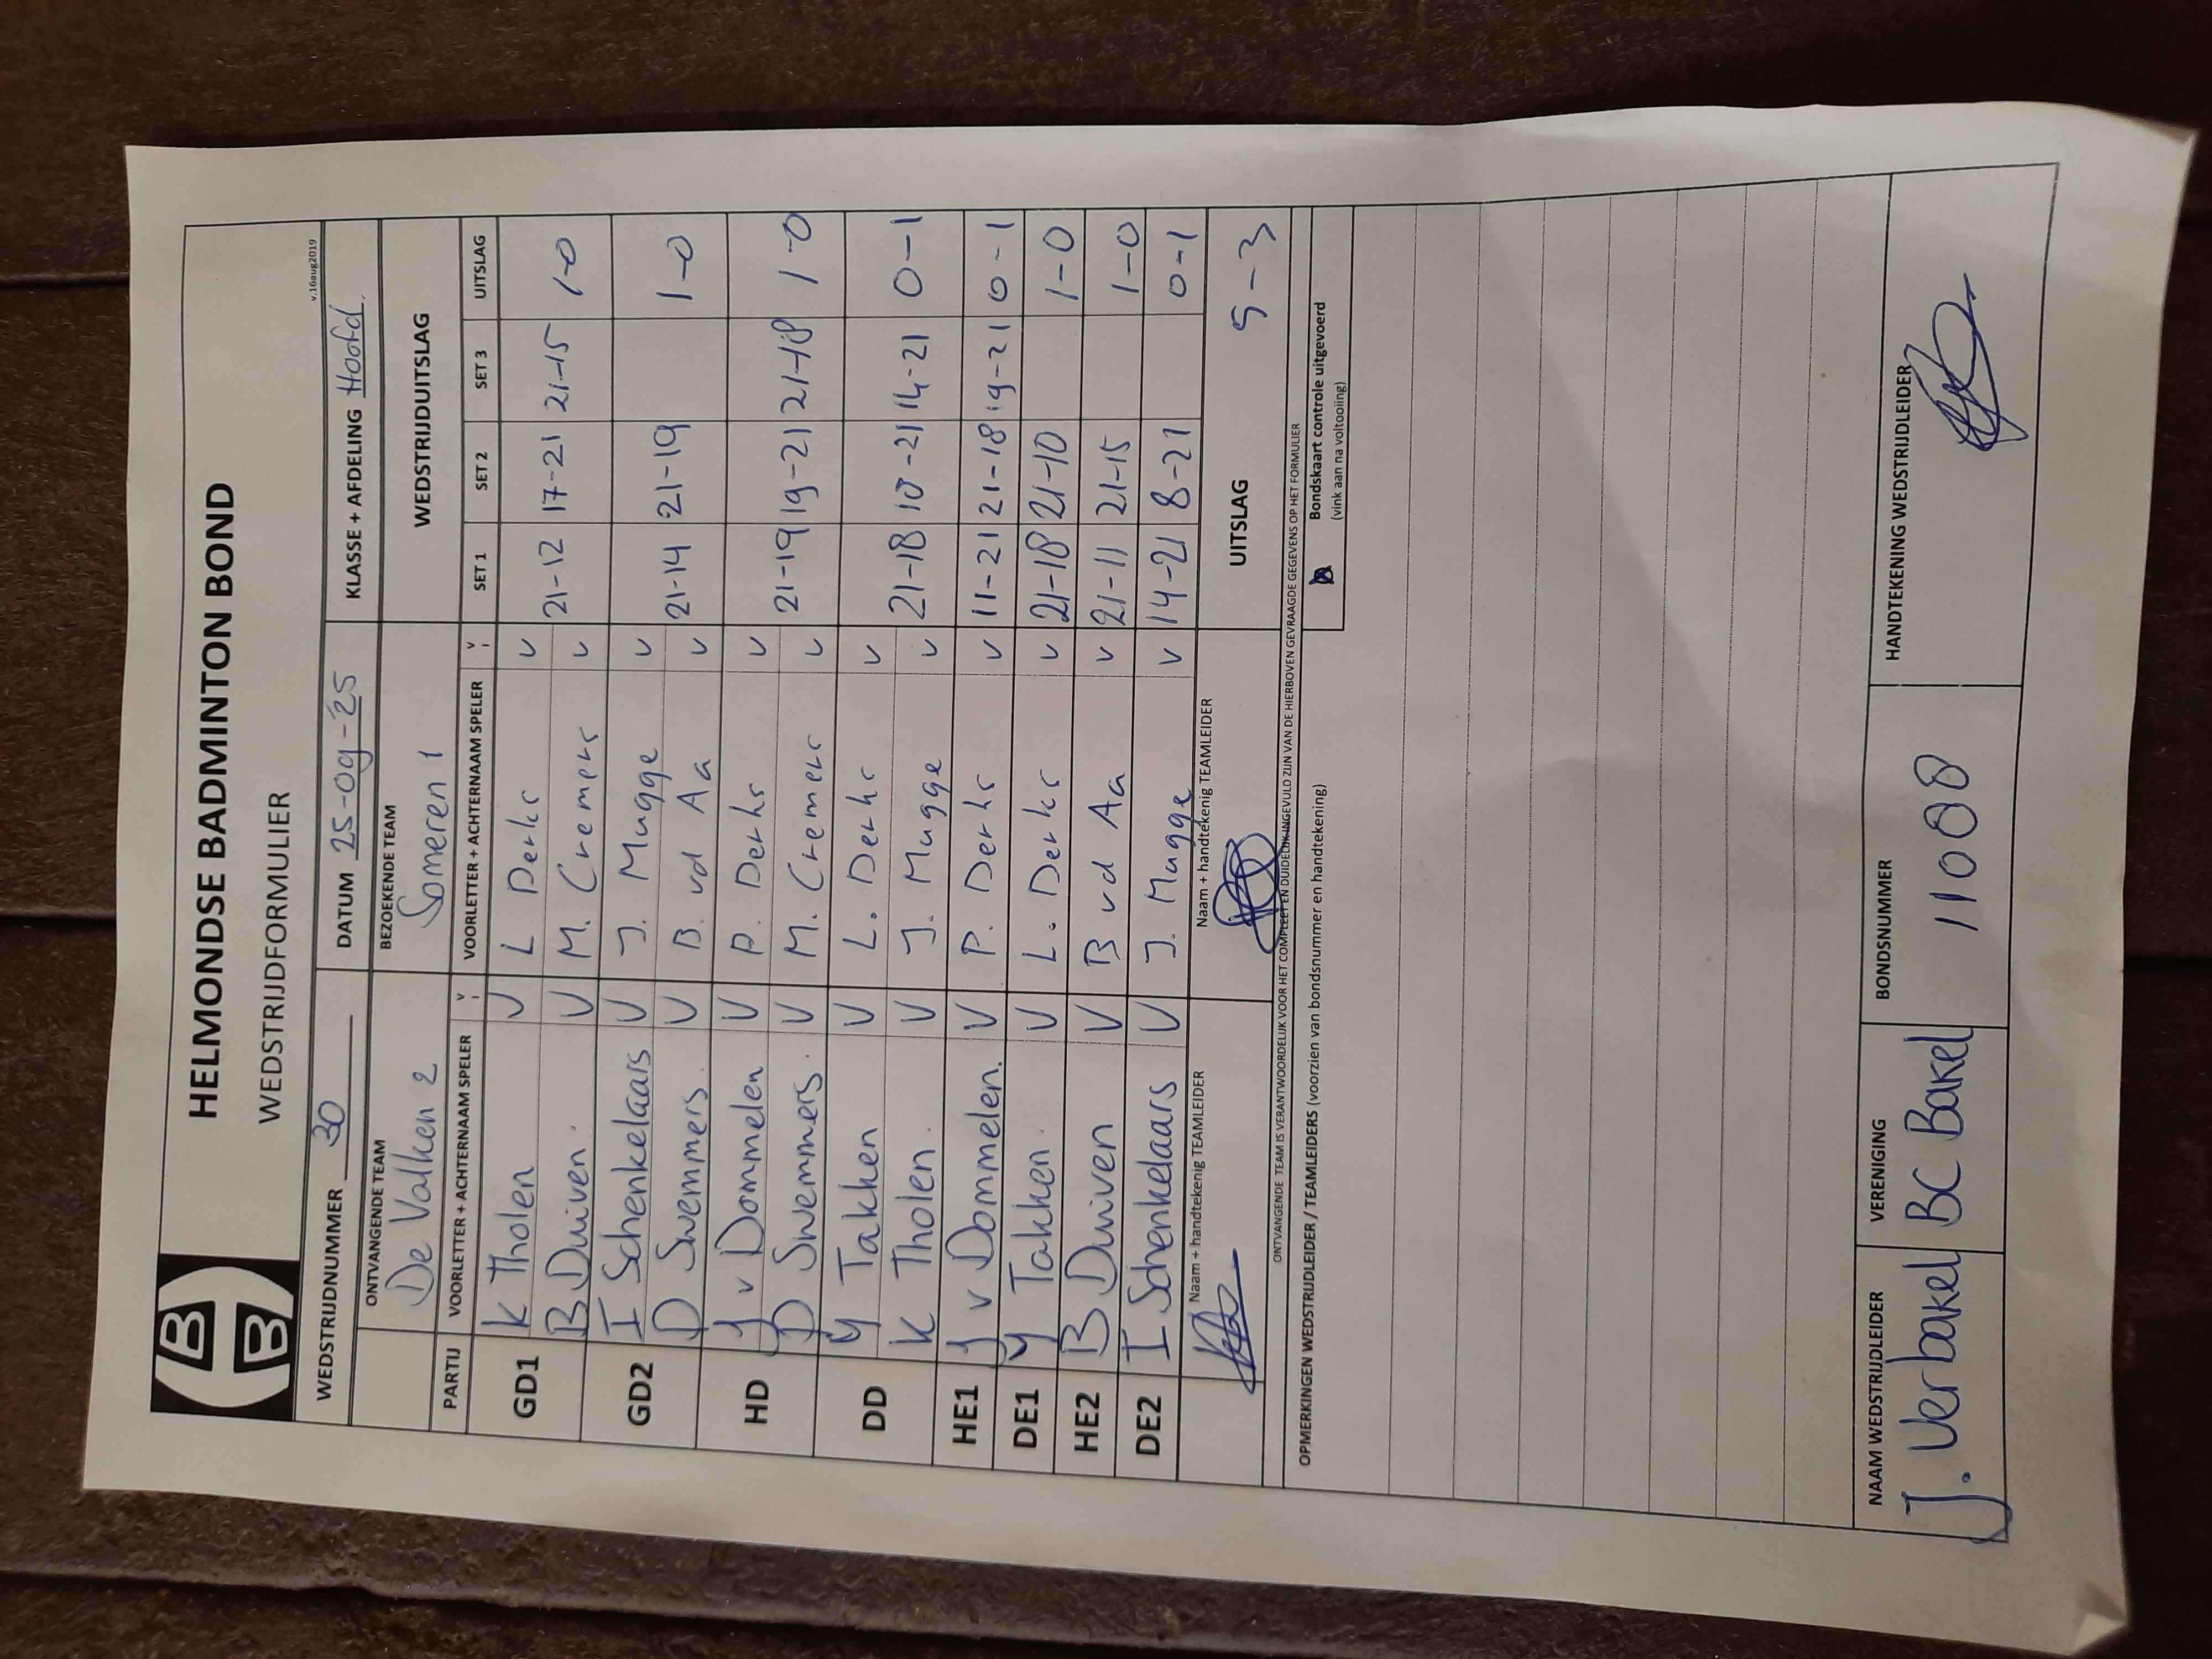 HELMONDSE BADMINTON BOND
WEDSTRIJDFORMULIER
v.16aug2019
WEDSTRIJDNUMMER 30 DATUM 25-09-25 KLASSE + AFDELING Hoofd
ONTVANGENDE TEAM BEZOEKENDE TEAM WEDSTRIJDUITSLAG
De Valken 2 Someren 1
PARTIJ VOORLETTER + ACHTERNAAM SPELER V VOORLETTER + ACHTERNAAM SPELER V SET 1 SET 2 SET 3 UITSLAG
GD1 K Tholen V L Derks v
B Duiven. V M. Cremers v 21-12 17-21 21-15 1-0
GD2 I Schenkelaars V J. Mugge v
D Swemmers. V B. vd Aa v 21-14 21-19 1-0
HD J v Dommelen V P. Derks v
D Swemmers. V M. Cremers v 21-19 19-21 21-18 1-0
DD Y Takken V L. Derks v
K Tholen. V J. Mugge v 21-18 10-21 14-21 0-1
HE1 J v Dommelen. V P. Derks v 11-21 21-18 19-21 0-1
DE1 Y Takken. V L. Derks v 21-18 21-10 1-0
HE2 B Duiven V B vd Aa v 21-11 21-15 1-0
DE2 I Schenkelaars V J. Mugge v 14-21 8-21 0-1
Naam + handtekenig TEAMLEIDER Naam + handtekenig TEAMLEIDER UITSLAG 5-3
ONTVANGENDE TEAM IS VERANTWOORDELIJK VOOR HET COMPLEET EN DUIDELIJK INGEVULD ZIJN VAN DE HIERBOVEN GEVRAAGDE GEGEVENS OP HET FORMULIER
OPMERKINGEN WEDSTRIJDLEIDER / TEAMLEIDERS (voorzien van bondsnummer en handtekening) Bondskaart controle uitgevoerd
(vink aan na voltooiing)
NAAM WEDSTRIJDLEIDER VERENIGING BONDSNUMMER HANDTEKENING WEDSTRIJDLEIDER
J. Verbakel BC Bakel 11008